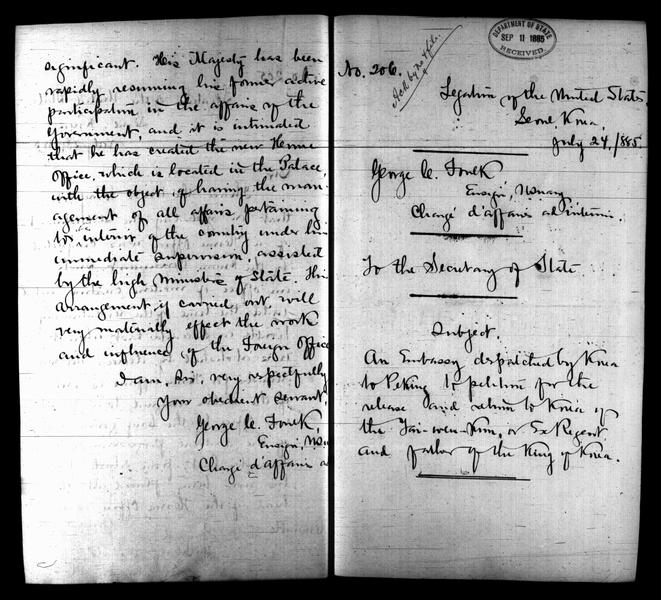 significant. His Majesty has been
rapidly resuming his former active
participation in the affairs of the
Government, and it is intimated
that he has created the new Home
Office, which is located in the Palace,
with the object of having the man-
agement of all affairs pertaining
to interior of the country under his
immediate supervision, assisted
by the high Ministers of State. This
arrangement, if carried out, will
very materially effect the work
and influence of the Foreign Office
I am, Sir, very respectfully
Your obedient servant,
George C. Foulk,
Ensign,
Chargé d'affaires a
No. 206.
DEPARTMENT OF STATE
SEP 11 1885
RECEIVED
Legation of the United States,
Seoul, Korea,
July 24, 1885
George C. Foulk
Ensign, U.S. Navy
Chargé d'affaires ad interim.
To the Secretary of State
Subject.
An Embassy dispatched by Korea
to Peking to petition for the
release and return to Korea of
the Tai-wen-Kun, or Ex Regent
and father of the King of Korea.